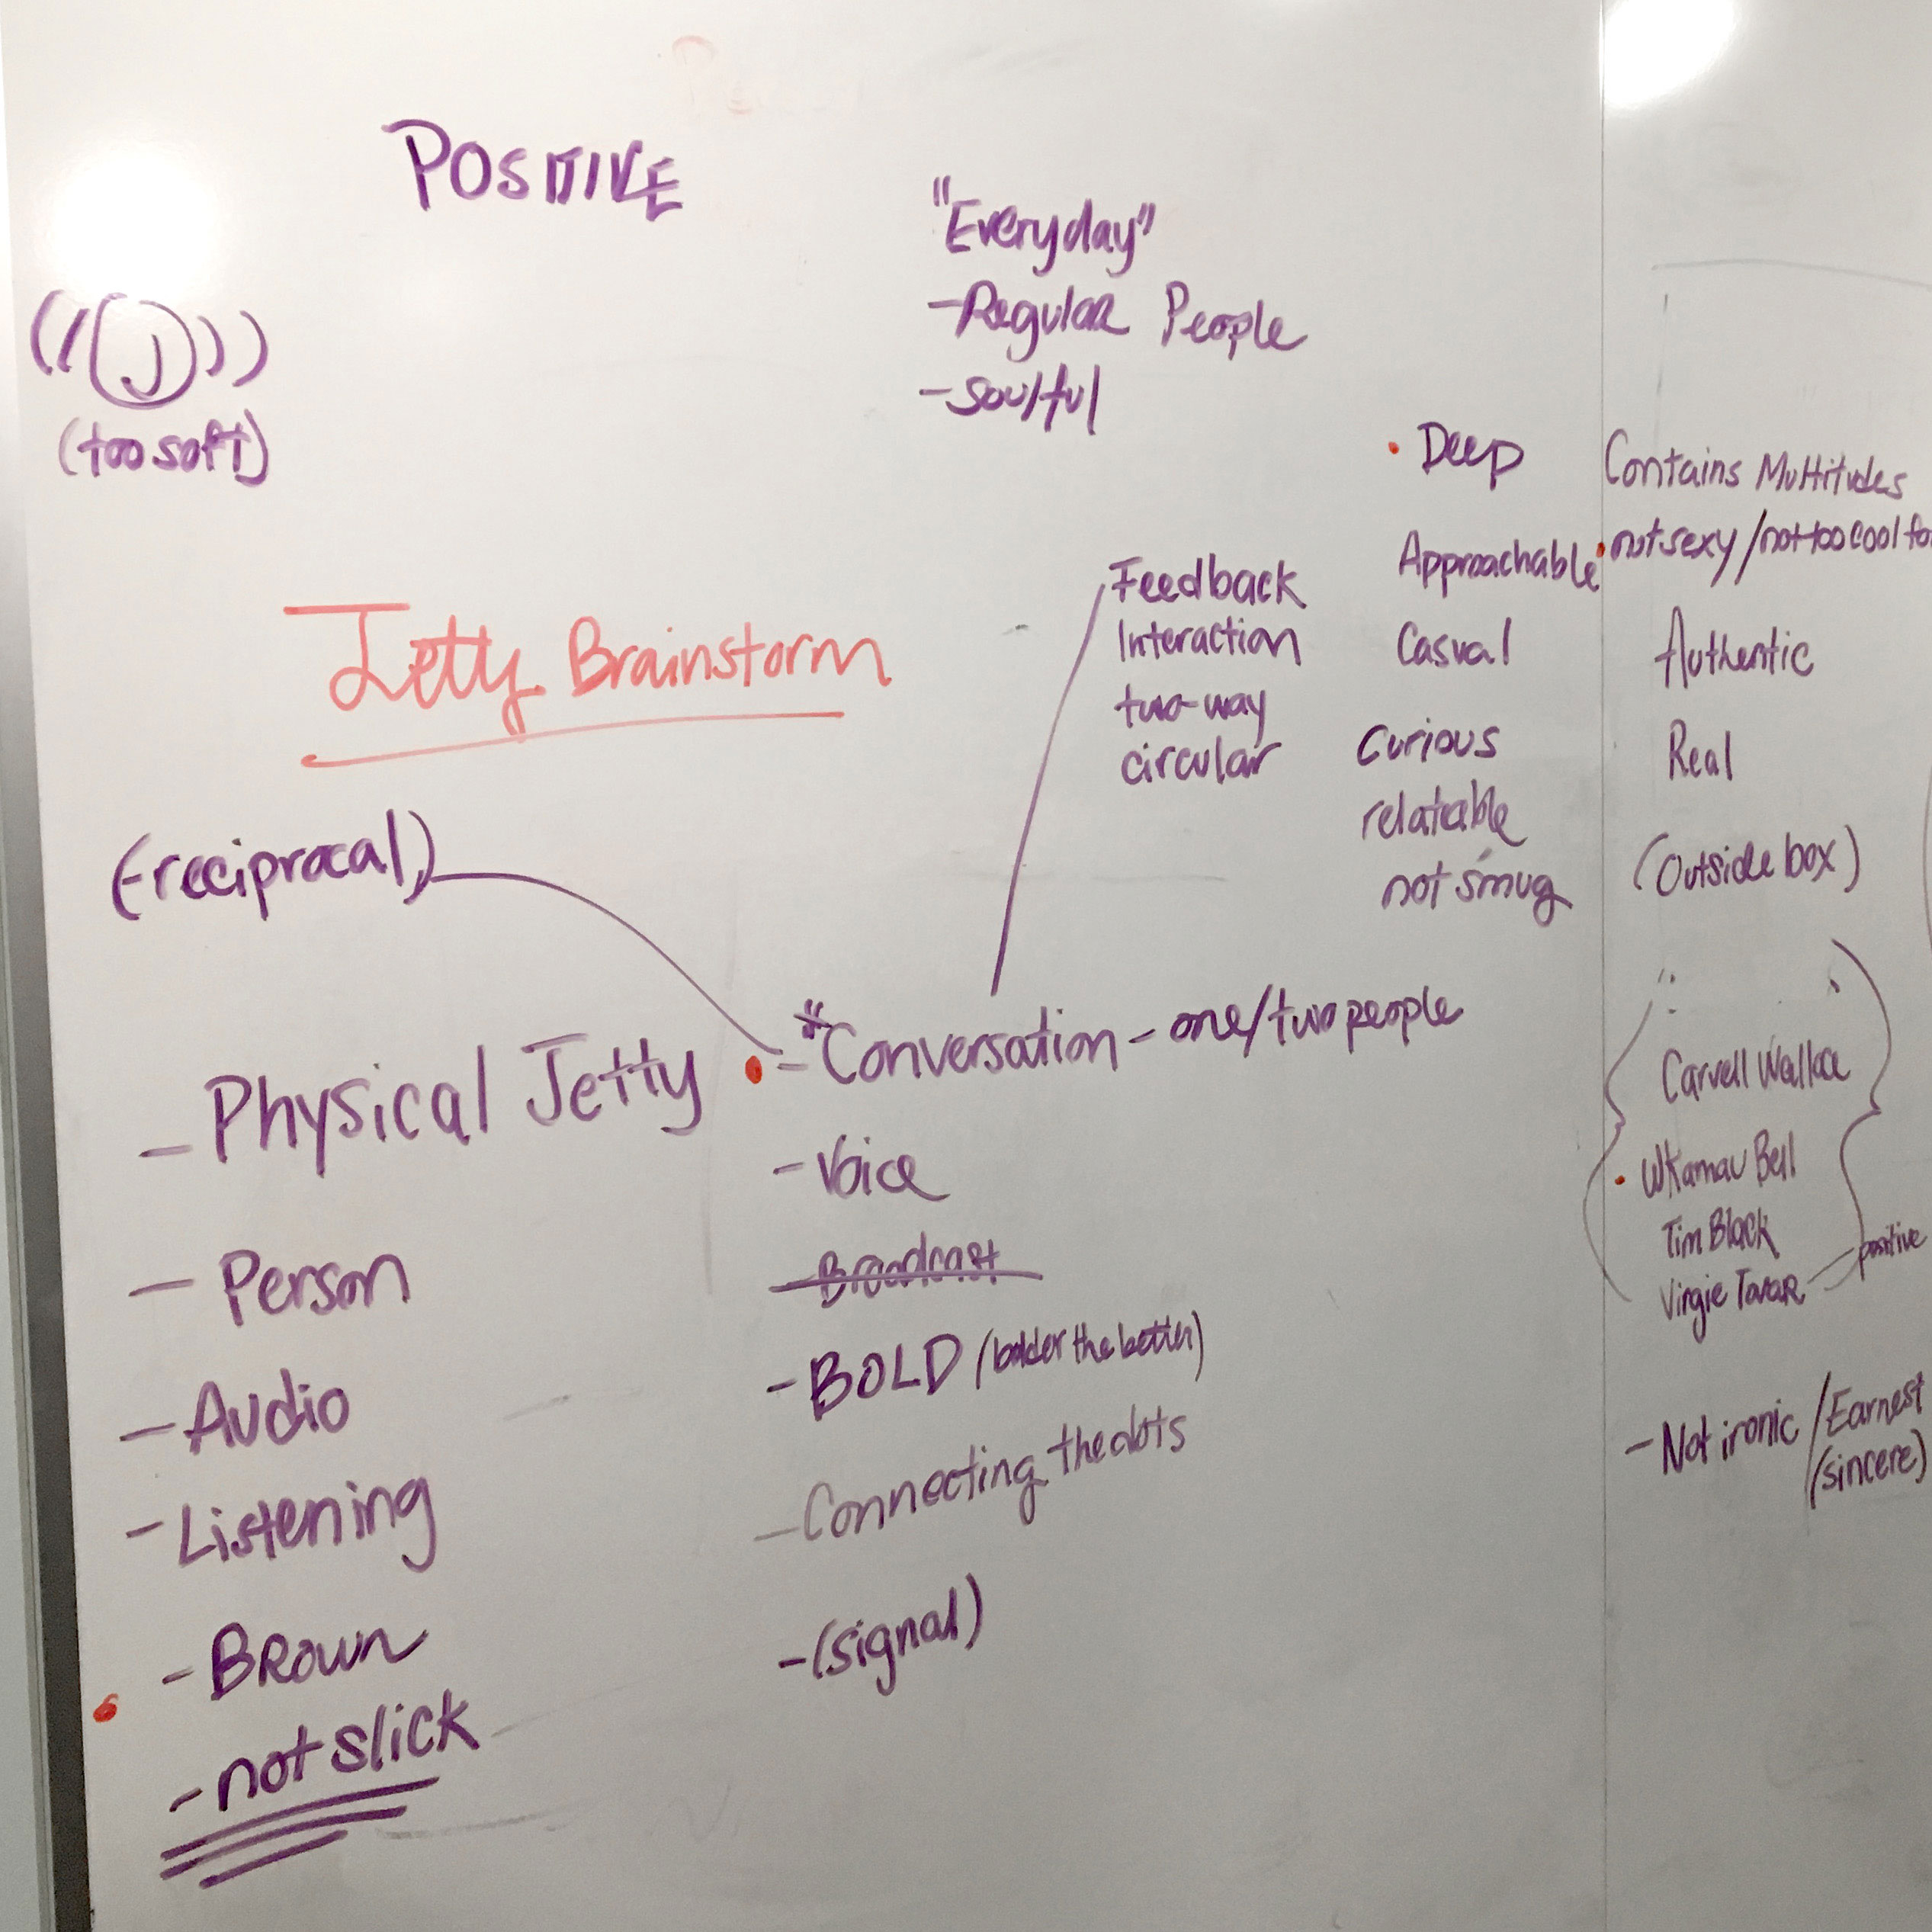 POSITIVE
"Everyday"
- Regular People
- Soulful
((J))
(too soft)
Jetty Brainstorm
(-reciprocal)
- Physical Jetty
- Person
- Audio
- Listening
- Brown
- not slick
- "Conversation - one/two people
- Voice
- Broadcast
- BOLD (bolder the better)
- Connecting the dots
- (signal)
Feedback
Interaction
two-way
circular
• Deep
Approachable
Casual
Curious
relatable
not smug
Contains Multitudes
• not sexy/not too cool
Authentic
Real
(Outside box)
Carvell Wallace
• WKamau Bell
Tim Black
Virgie Tovar - positive
- Not ironic / Earnest
(sincere)